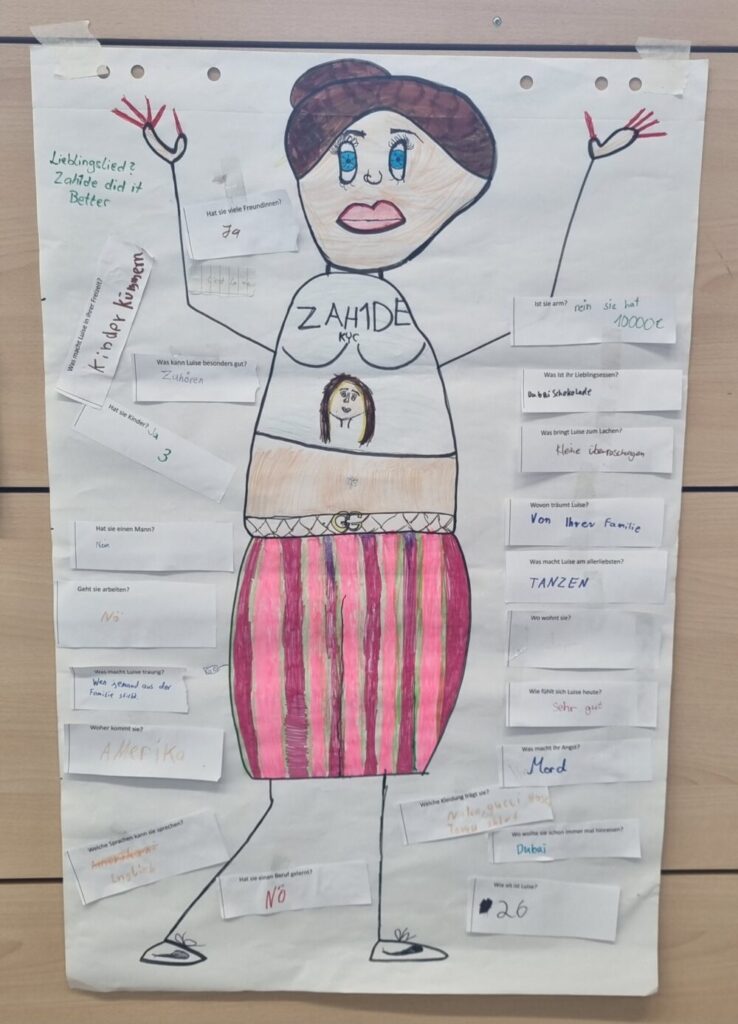 Lieblingslied?
Zah1de did it
Better
Hat sie viele Freundinnen?
Ja
Was macht Luise in ihrer Freizeit?
Kinder kümmern
Was kann Luise besonders gut?
Zuhören
Hat sie Kinder? Ja
3
Hat sie einen Mann?
Non
Geht sie arbeiten?
Nö
Was macht Luise traurig?
Wen jemand aus der
Familie stirbt
Woher kommt sie?
AMerika
Welche Sprachen kann sie sprechen?
Englisch
Hat sie einen Beruf gelernt?
Nö
ZAH1DE
KYC
GG
Ist sie arm? nein sie hat
10000€
Was ist ihr Lieblingsessen?
Dubai Schokolade
Was bringt Luise zum Lachen?
kleine überraschungen
Wovon träumt Luise?
Von Ihrer Familie
Was macht Luise am allerliebsten?
TANZEN
Wo wohnt sie?
Wie fühlt sich Luise heute?
Sehr gut
Was macht ihr Angst?
Mord
Welche Kleidung trägt sie?
gucci
Wo wollte sie schon immer mal hinreisen?
Dubai
Wie alt ist Luise?
26